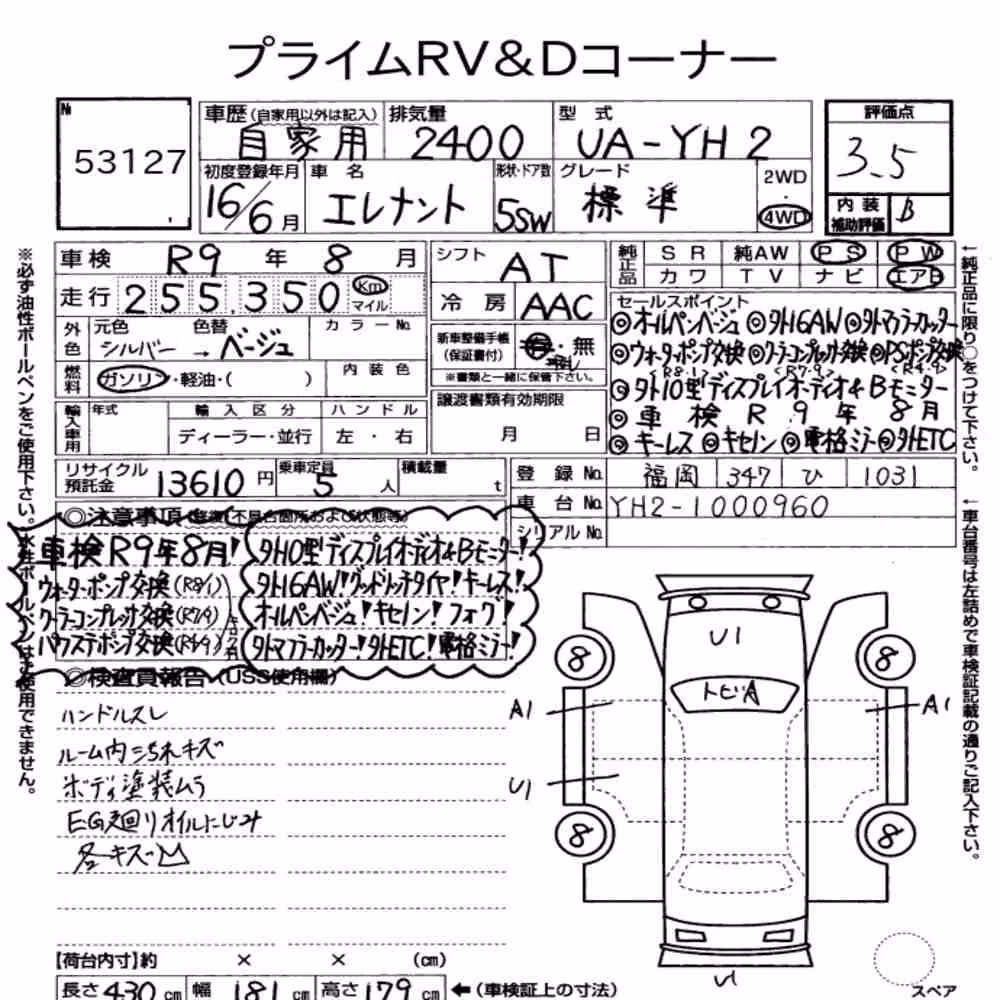 プライムRV&Dコーナー
№ 53127
車歴(自家用以外は記入) 自家用
排気量 2400
型式 UA-YH2
評価点 3.5
初度登録年月 16/6月
車名 エレナント
形状・ドア数 5SW
グレード 標準
2WD・4WD
内装補助評価 B
車検 R9年8月
シフト AT
純正品 SR 純AW PS PW
カワ TV ナビ エアB
走行 255,350 Km マイル
冷房 AAC
セールスポイント
◎オールペンベージュ ◎タト16AW ◎タトマフラーカッター
◎ウォーターポンプ交換(R8.1) ◎クーラーコンプレッサ交換(R7.9) ◎PSポンプ交換(R4.9)
◎タト10型ディスプレイオーディオ&Bモニター
◎車検R9年8月
◎キーレス ◎キセノン ◎電格ミラー ◎タトETC
外色 元色 シルバー → 色替 ベージュ カラーNo.
新車整備手帳(保証書付) 有・無
※書類と一緒に保管下さい。
燃料 ガソリン・軽油・( ) 内装色
譲渡書類有効期限 月 日
輸入車用 年式 輸入区分 ディーラー・並行 ハンドル 左・右
リサイクル預託金 13610円
乗車定員 5人
積載量 t
登録No. 福岡 347 ひ 1031
車台No. YH2-1000960
シリアルNo.
◎注意事項
車検R9年8月!
ウォーターポンプ交換(R8/1)
クーラーコンプレッサ交換(R7/9)
パワステポンプ交換(R4/9)
タト10型ディスプレイオーディオ&Bモニター!
タト16AW!グッドリッチタイヤ!キーレス!
オールペンベージュ!キセノン!フォグ!
タトマフラーカッター!タトETC!電格ミラー!
◎検査員報告(USS使用欄)
ハンドルスレ
ルーム内ヨゴレキズ
ボディ塗装ムラ
EG廻りオイルにじみ
各一キズ凹
U1
トビA
A1
A1
U1
8
8
8
8
U1
【荷台内寸】約 × × (cm)
長さ430cm 幅181cm 高さ179cm ←(車検証上の寸法)
スペア
※必ず油性ボールペンをご使用下さい。水性ボールペンは使用できません。
←純正品に限り○をつけて下さい。
←車台番号は左詰めで車検証記載の通りご記入下さい。